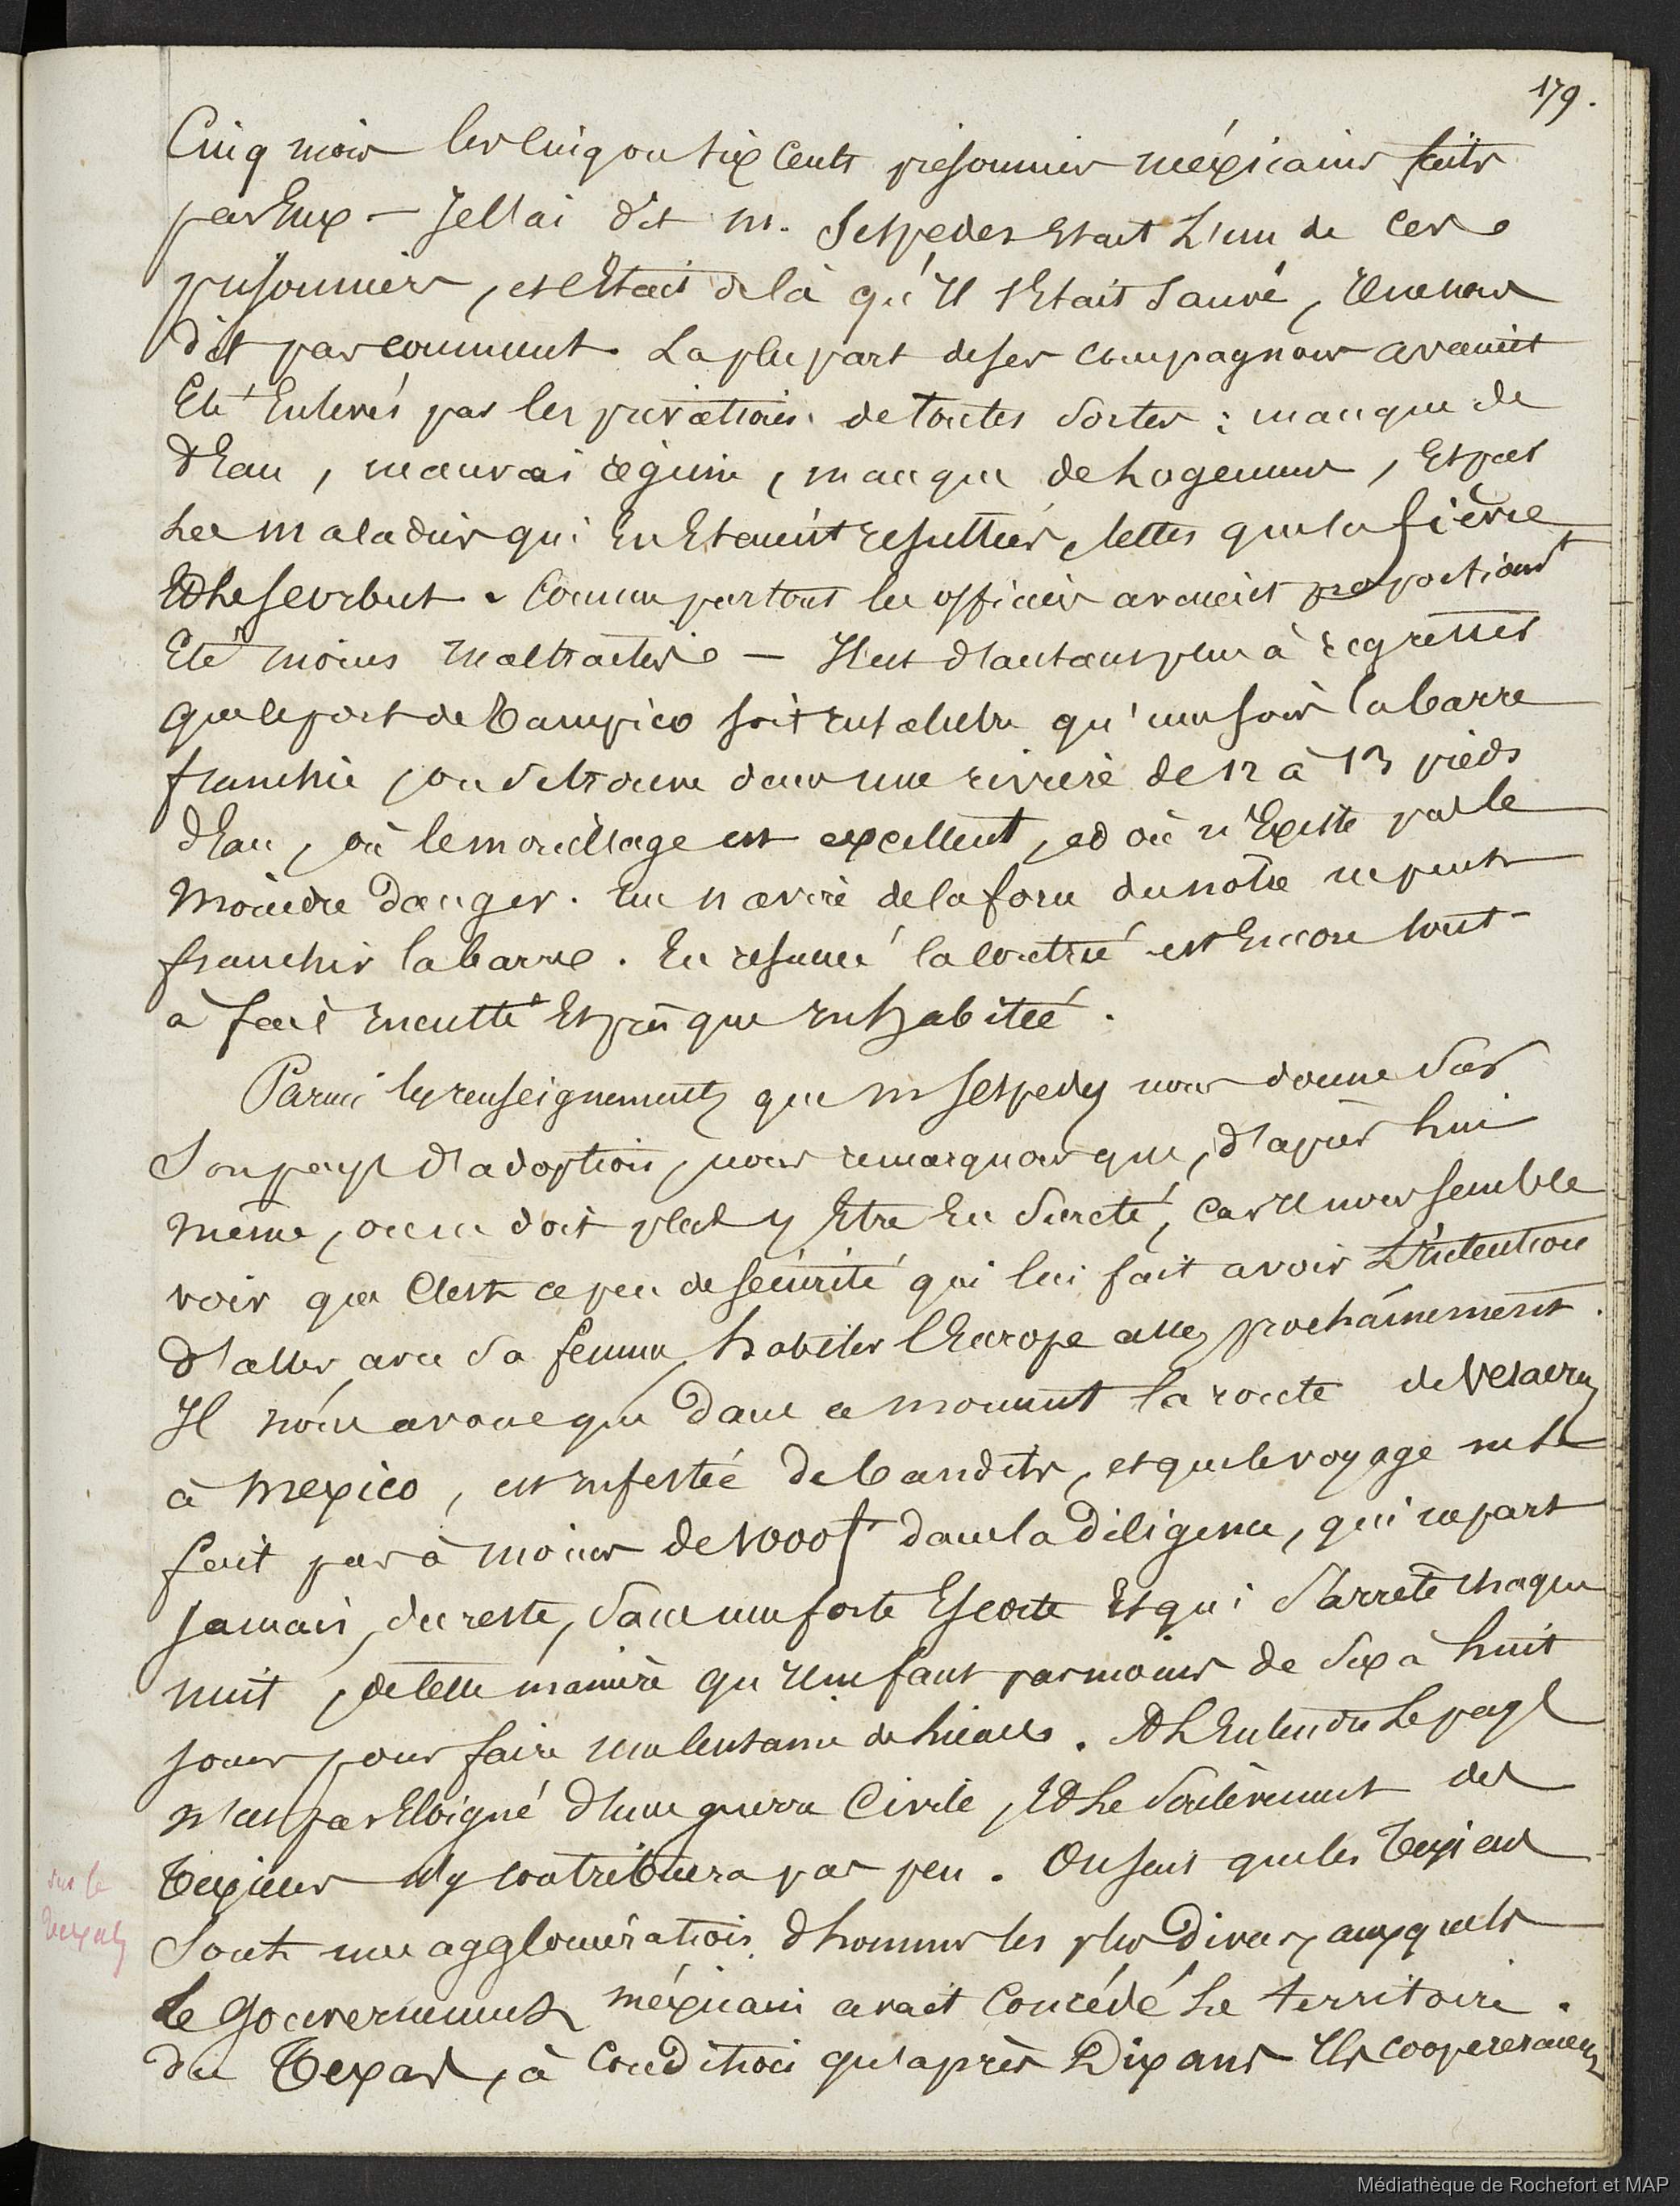 179.
Cinq mois les cinq ou six cents prisonniers méxicains faits
par Eux — dit M. Sespedes Etait L'un de Ces
prisonniers, et c'Etait de là qu'Il s'Etait Sauvé, Il ne nous
dit pas comment. La plupart de ses compagnons avaient
Eté Enlevés par les privations de toutes Sortes : manque de
d'Eau, mauvais régime, manque de Logement, Et par
Les maladies qui En Etaient resultées, telles que la fièvre
Et Le Scorbut. Comme partout les officiers avaient proportiont
Eté moins maltraités — Il est d'autant plus à regretter
que le port de Tampico soit insalubre qu'une fois la barre
franchie, on se trouve dans une rivière de 12 à 13 pieds
d'Eau, où le mouillage est excellent, et où n'Existe pas le
moindre danger. Un navire de la force du nôtre ne peut
franchir la barre. En resumé la contrée est Encore tout-
à fait inculte Et presque inhabitée.
Parmi les renseignements que M Sespedes nous donne Sur
Son pays d'adoption, nous remarquons que, d'après Lui
même, on ne doit pas y Etre En Sureté, car Il nous semble
voir que C'est ce peu de sécurité qui lui fait avoir L'intention
d'aller avec Sa femme, habiter l'Europe assez prochainement.
Il nous avoue que dans ce moment la route de Veracruz
à Mexico, est infestée de bandits, et que le voyage ne se
fait pas à moins de 1000f dans la diligence, qui ne part
jamais, du reste, Sans une forte Escorte Et qui S'arrête chaque
nuit, de telle manière qu'Il ne faut pas moins de Six à huit
jours pour faire une centaine de lieues. A L'Entendre Le pays
n'est pas Eloigné d'une guerre Civile, Et Le Soulèvement des
Texiens n'y contribuera pas peu. On sait que les Texiens
Sont une agglomération d'hommes les plus divers, auxquels
le Gouvernement méxicain avait Concédé Le territoire
du Texas, à Condition qu'après Dix ans Ils coopereraient
sur le
Texas
Médiathèque de Rochefort et MAP